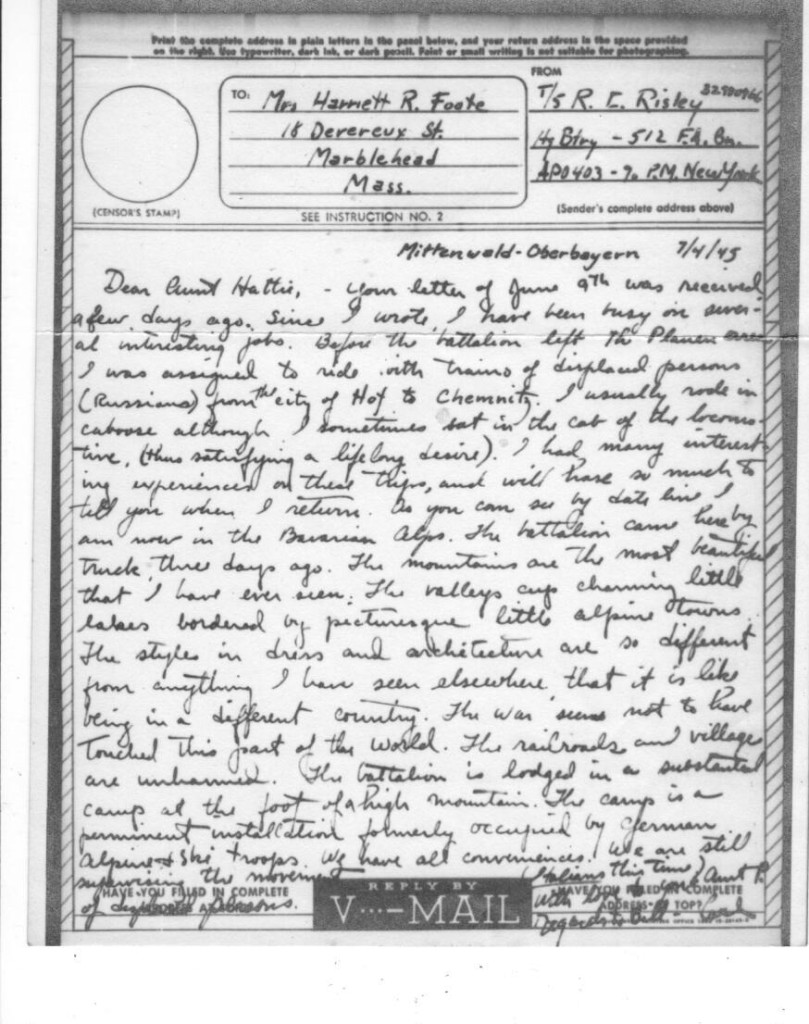 Print the complete address in plain letters in the panel below, and your return address in the space provided
on the right. Use typewriter, dark ink, or dark pencil. Faint or small writing is not suitable for photographing.
FROM
TO:
Mrs Harriett R. Foote
18 Devereux St.
Marblehead
Mass.
T/5 R. E. Risley 32980966
Hq Btry - 512 F.A. Bn.
APO 403 - % P.M. New York
(CENSOR'S STAMP)
SEE INSTRUCTION NO. 2
(Sender's complete address above)
Mittenwald-Oberbayern 7/4/45
Dear Aunt Hattie, - your letter of June 9th was received
a few days ago. Since I wrote, I have been busy on sever-
al interesting jobs. Before the battalion left the Plauen area
I was assigned to ride with trains of displaced persons
(Russians) from the city of Hof to Chemnitz. I usually rode in
caboose although I sometimes sat in the cab of the locomo-
tive, (thus satisfying a lifelong desire). I had many interest-
ing experiences on these trips, and will have so much to
tell you when I return. As you can see by date line I
am now in the Bavarian Alps. The battalion came here by
truck, three days ago. The mountains are the most beautiful
that I have ever seen. The valleys cup charming little
lakes bordered by picturesque little alpine towns.
The styles in dress and architecture are so different
from anything I have seen elsewhere, that it is like
being in a different country. The war seems not to have
touched this part of the world. The railroads and village
are unharmed. The battalion is lodged in a substantial
camp at the foot of a high mountain. The camp is a
perminent installation formerly occupied by German
Alpine & Ski troops. We have all conveniences. We are still
supervising the movement (Italians this time)
of displaced persons. With love to you & Aunt P.
Regards to Bill -
HAVE YOU FILLED IN COMPLETE
ADDRESS AT TOP?
REPLY BY
V···—MAIL
HAVE YOU FILLED IN COMPLETE
ADDRESS AT TOP?